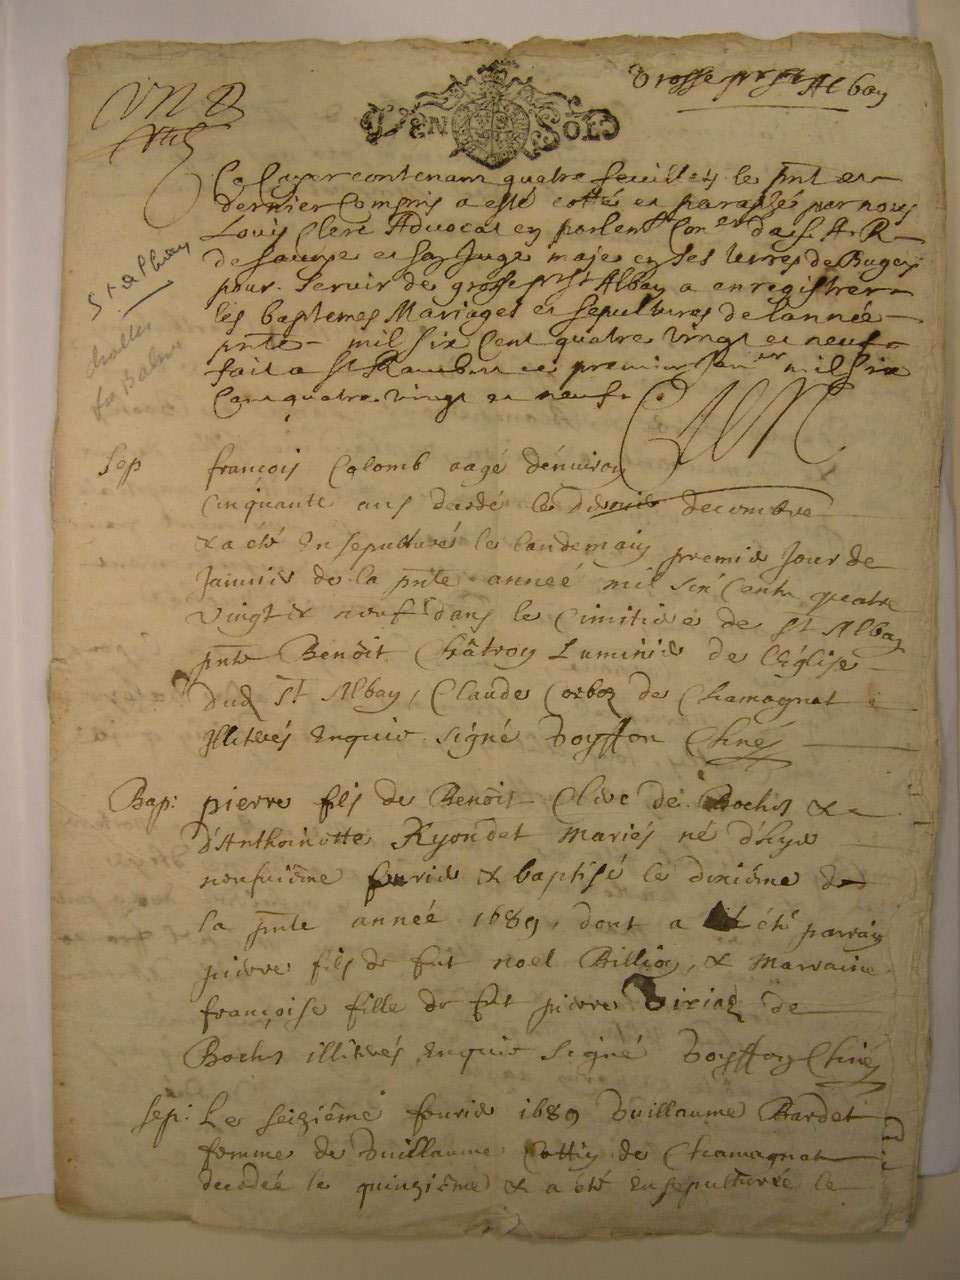 Grosse pour St Albay
VN SOL
Ce Cayer contenant quatre feuillets le pnt et
dernier Compris a esté cotté et paraphé par nous
Louis Clerc Advocat en parlemt Coner de S. A. R.
de Savoye et son Juge maje en ses terres de Bugey
pour servir de grosse pr St Albay a enregistrer
les baptemes Mariages et sepultures de lannée
pnte mil six Cent quatre vingt et neuf
fait a St Rambert ce premier Janer mil six
Cent quatre vingt et neuf
St Albay
Sep françois Colomb aagé dénuiron
Cinquante ans decedé le dernier decembre
& a été Ensepulturés le landemain premier Jour de
Januier de la pnte anneé mil six Cents quatre
vingt & neuf dans le Cimitiere de St Albay
pnts Benoit Châtron Luminier de l'église
dud St Albay, Claude Corboz de Chamagnat
Illiterés Enquis signé
Bap: pierre fils de Benoit Clerc de Boches &
d'Anthoinette Ryondet Mariés né d'hyer
neufuiéme feurier & baptisé le dixiéme de
la pnte année 1689, dont a été parrain
pierre fils de fut noel Billion, & Marraine
françoise fille de fut pierre de
Boches illiterés, Enquis signé
Sep: Le seiziéme feurier 1689 Guillaume Bardet
femme de Guillaume Cottin de Chamagnat
decedée le quinziéme & a été Ensepulturée le